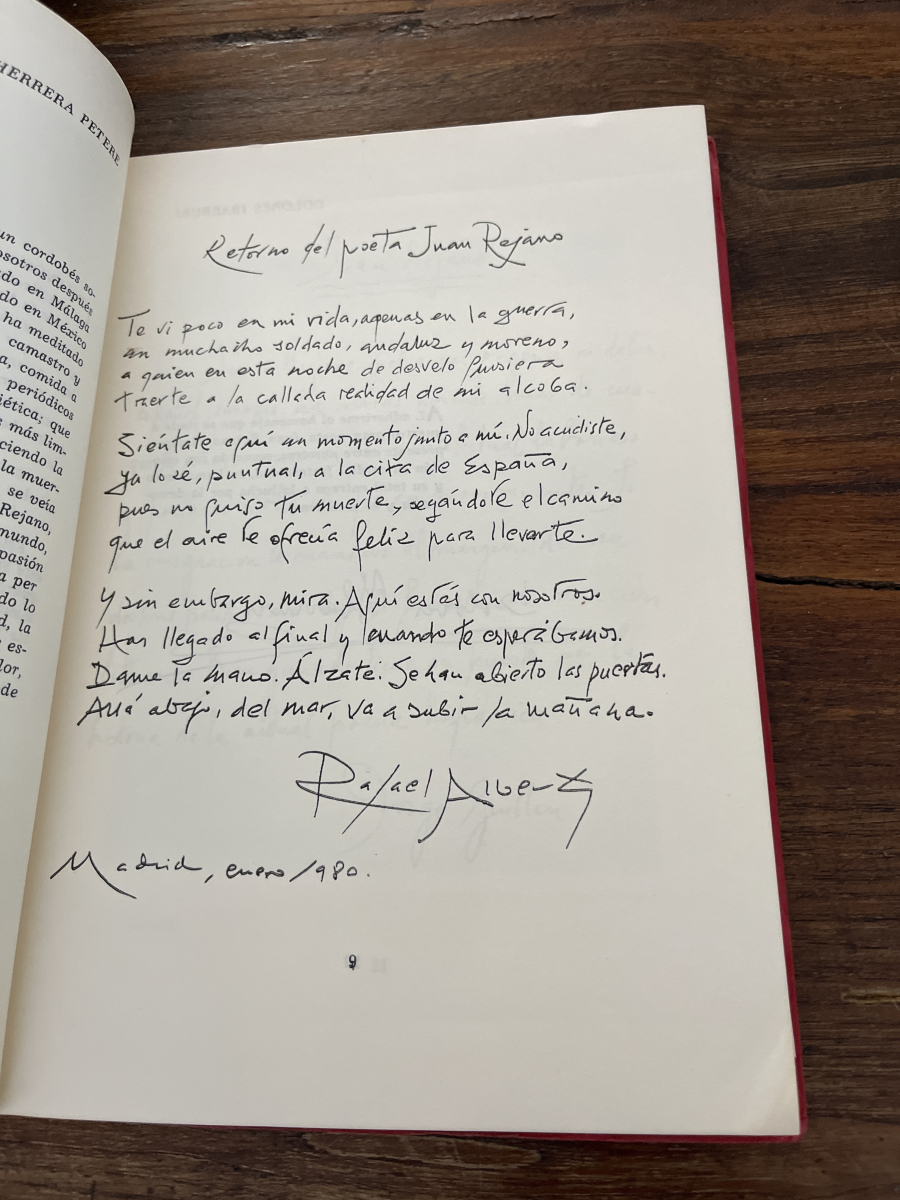 HERRERA PETERE
un cordobés so-
osotros después
do en Málaga
do en México
ha meditado
camastro y
a, comida a
periódicos
iética; que
s más lim-
ciendo la
la muer-
se veía
Rejano,
mundo,
pasión
a per
do lo
d, la
es-
lor,
de
Retorno del poeta Juan Rejano
Te vi poco en mi vida, apenas en la guerra,
un muchacho soldado, andaluz y moreno,
a quien en esta noche de desvelo quisiera
traerte a la callada realidad de mi alcoba.
Siéntate aquí un momento junto a mí. No acudiste,
ya lo sé, puntual, a la cita de España,
pues no quiso tu muerte, segándole el camino
que el aire le ofrecía feliz para llevarte.
Y sin embargo, mira. Aquí estás con nosotros.
Has llegado al final y levando te esperábamos.
Dame la mano. Álzate. Se han abierto las puertas.
Allá abajo, del mar, va a subir la mañana.
Rafael Alberti
Madrid, enero 1980.
9